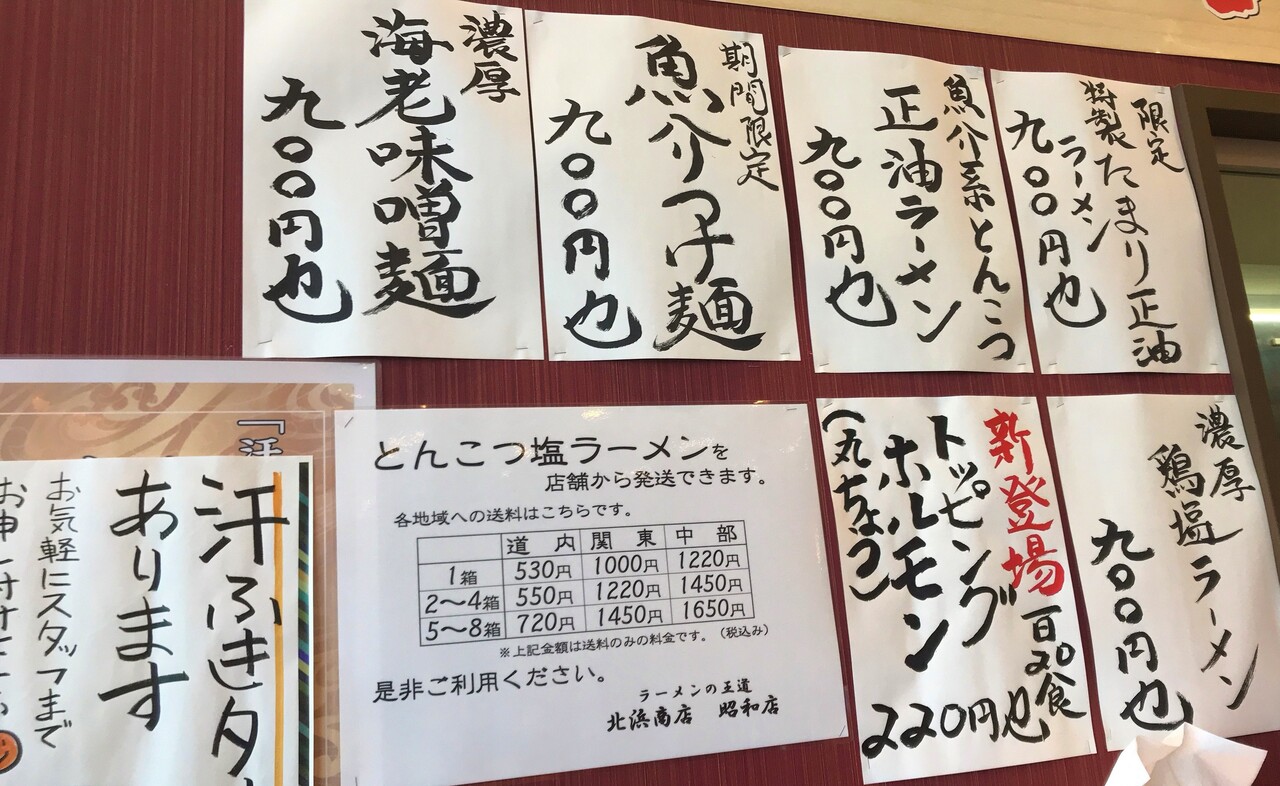 濃厚
海老味噌麺
九〇〇円也
期間限定
魚介つけ麺
九〇〇円也
魚介系とんこつ
正油ラーメン
九〇〇円也
限定
特製たまり正油
ラーメン
九〇〇円也
「汗
汗ふきタ
あります
お気軽にスタッフまで
とんこつ塩ラーメンを
店舗から発送できます。
各地域への送料はこちらです。
道内 関東 中部
1箱 530円 1000円 1220円
2～4箱 550円 1220円 1450円
5～8箱 720円 1450円 1650円
※上記金額は送料のみの料金です。（税込み）
是非ご利用ください。
ラーメンの王道
北浜商店 昭和店
新登場
トッピング
ホルモン
(丸ちょう)
220円也
濃厚
鶏塩ラーメン
九〇〇円也